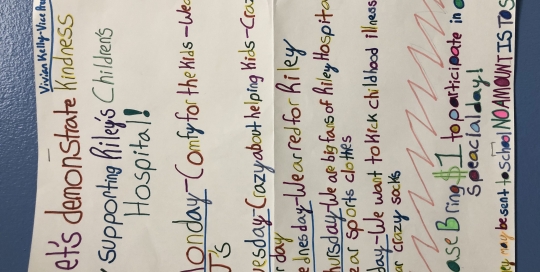 Vivian Kelly-Vice Pre
et's demonstrate Kindness
supporting Riley's Children's
Hospital!
onday-Comfy for the kids-Wea
J's
esday-Crazy about helping kids-Craz
r day
dnesday-We are red for Riley
ursday-We are big fans of Riley Hospita
ear sports clothes
day-We want to kick childhood illness
r crazy socks
ase Bring $1 to participate in
Speacial day!
ey may be sent to school NO AMOUNT IS TO S